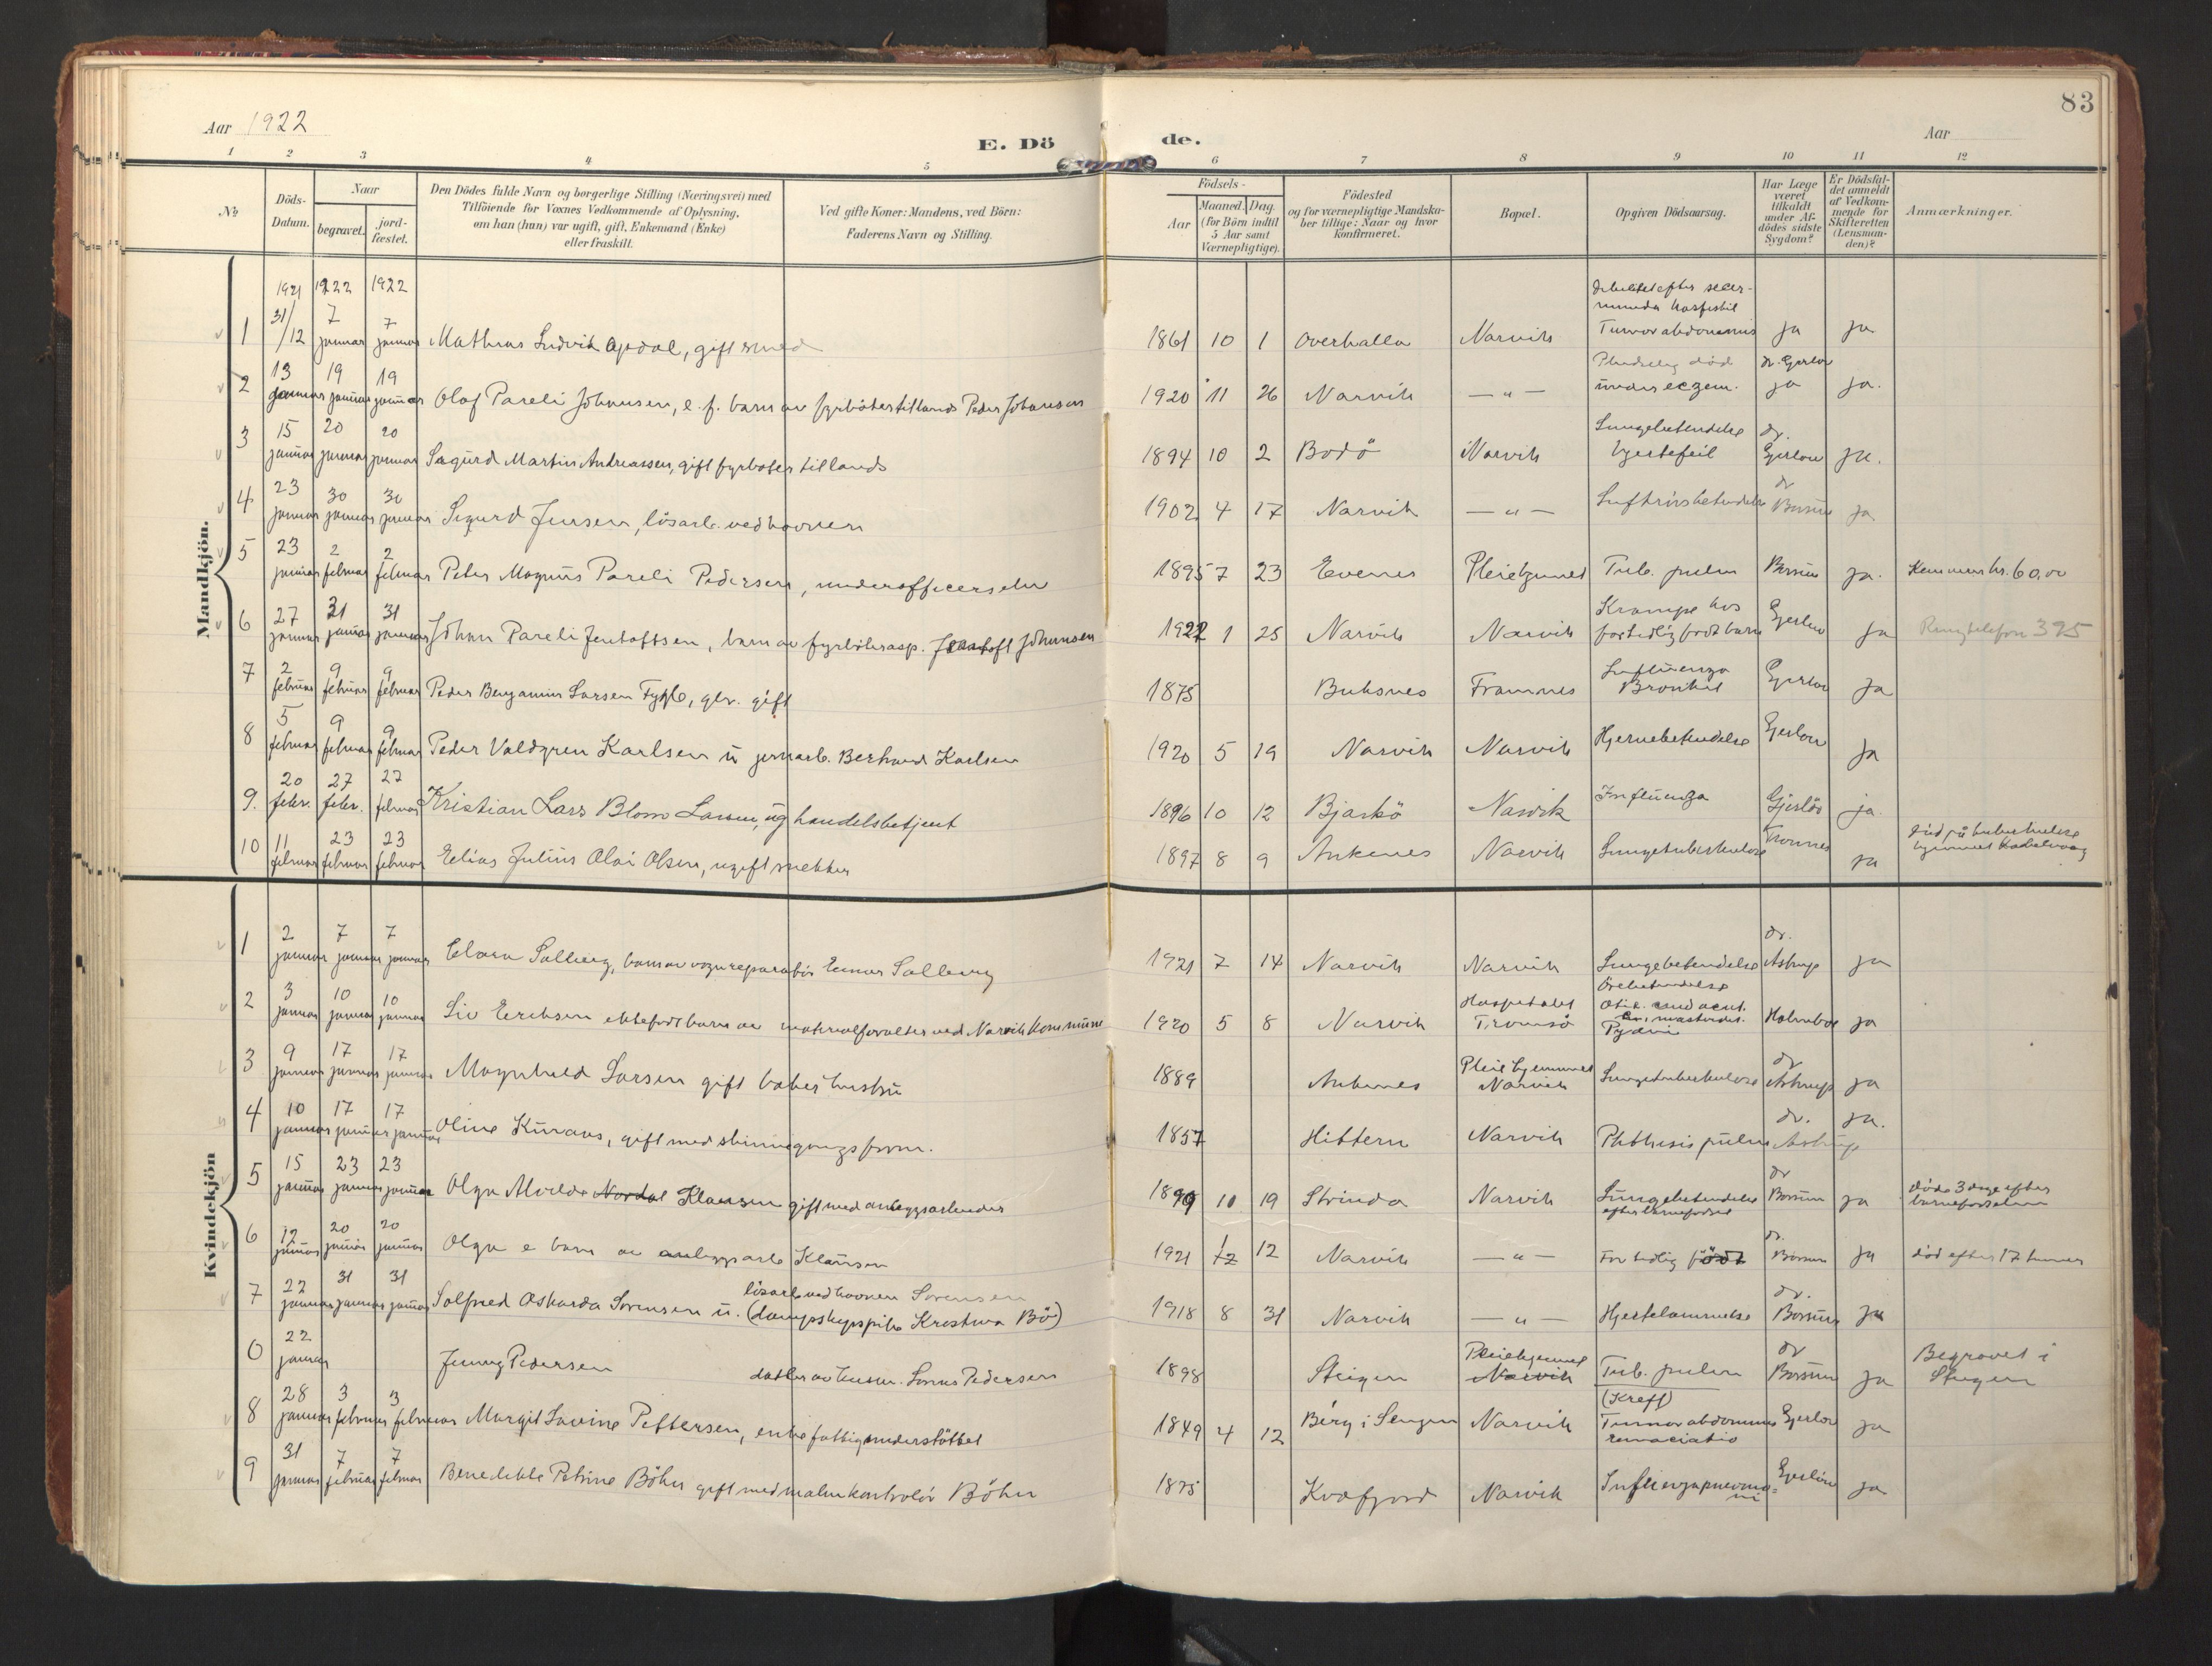 83
Aar 1922
E. Dö de.
Aar
1 2 3 4 5 6 7 8 9 10 11 12
№
Döds-Datum.
Naar
begravet.
jord-fæstet.
Den Dödes fulde Navn og borgerlige Stilling (Næringsvei) med
Tilföiende for Voxnes Vedkommende af Oplysning,
om han (hun) var ugift, gift, Enkemand (Enke)
eller fraskilt.
Ved gifte Koner: Mandens, ved Börn:
Faderens Navn og Stilling.
Födsels-
Aar
Maaned. Dag.
(for Börn indtil
5 Aar samt
Værnepligtige).
Födested
og for værnepligtige Mandska-
ber tillige: Naar og hvor
konfirmeret.
Bopæl.
Opgiven Dödsaarsag.
Har Læge
været
tilkaldt
under Af-
dödes sidste
Sygdom?
Er Dödsfal-
det anmeldt
af Vedkom-
mende for
Skifteretten
(Lensman-
den)?
Anmærkninger.
Mandkjön.
1921 1922 1922
1 31/12 7 januar 7 januar Mathias Ludvik Opdal, gift smed 1861 10 1 Overhalla Narvik Tumor abdominis ja ja
2 13 januar 19 januar 19 januar Olaf Pareli Johansen, e. f. barn av fyrböter tillands Peder Johansen 1920 11 26 Narvik — " — Pludselig död under eczem. dr. Gjerlöw ja ja.
3 15 januar 20 januar 20 januar Sigurd Martin Andreassen, gift fyrböter tillands 1894 10 2 Bodö Narvik Lungebetendelse hjertefeil dr. Gjerlöw ja.
4 23 januar 30 januar 30 januar Sigurd Jensen, lösarb. ved havnen 1902 4 17 Narvik — " — Luftrörsbetendelse dr Borsum ja
5 23 januar 2 februar 2 februar Peter Magnus Pareli Pedersen, underofficerselev 1895 7 23 Evenes Pleiehjemmet Tub. pulm Borsum ja. kr. 60,00
6 27 januar 31 januar 31 januar Johan Pareli Jentoftsen, barn av fyrböterasp. Jentoft Johansen 1922 1 25 Narvik Narvik Krampe hos for tidlig födt barn Gjerlöw ja Ring telefon 395
7 2 februar 9 februar 9 februar Peder Benjamin Larsen gift 1875 Buksnes Framnes Influenza Bronkit Gjerlöw ja
8 5 februar 9 februar 9 februar Peder Valdgren Karlsen u jernarb. Berhard Karlsen 1920 5 19 Narvik Narvik Hjernebetendelse Gjerlöw ja
9. 20 febr. 27 febr. 27 februar Kristian Lars Blom Larsen, ug handelsbetjent 1896 10 12 Bjarkö Narvik Influenza Gjerlöw ja.
10 11 februar 23 februar 23 februar Elias Julius Olai Olsen, ugift snekker 1897 8 9 Ankenes Narvik Lungetuberkulose Tronnes ja död på tuberkulose hjemmet Kabelvaag
Kvindekjön
1 2 januar 7 januar 7 januar Clara Solberg, barn av vognreparatör Einar Solberg 1921 7 14 Narvik Narvik Lungebetendelse dr. Astrup ja
2 3 januar 10 januar 10 januar Liv Eriksen ektefödt barn av materialforvalter ved Narvik kommune 1920 5 8 Narvik Hospitalet Tromsö Örebetendelse Otit. med acut. mastoidit. Pyæmi Holmboe ja
3 9 januar 17 januar 17 januar Magnhild Larsen gift baker hustru 1889 Ankenes Pleiehjemmet Narvik Lungetuberkulose dr Astrup ja
4 10 januar 17 januar 17 januar Oline Kuraas, gift med skinnegangsform. 1857 Hitteren Narvik Phthisis pulm dr. Astrup ja.
5 15 januar 23 januar 23 januar Olga Alvilde Nordal Klausen gift med anleggsarbeider 1890 10 19 Strinda Narvik Lungebetendelse efter barnefödsel dr Borsum ja döde 3 dage efter barnefödselen
6 12 januar 20 januar 20 januar Olga e barn av anleggsarb Klausen 1921 1/2 12 Narvik — " — For tidlig födt dr. Borsum ja död efter 17 timer
7 22 januar 31 januar 31 januar Solfred Oskarda Sörensen u. lösarb. ved havnen Sörensen (dampskipspike Kristina Bö) 1918 8 31 Narvik — " — Hjertelammelse dr. Borsum ja
0 22 januar Jenny Pedersen datter av Lornts Pedersen 1898 Steigen Pleiehjemmet Narvik Tub. pulm dr Borsum ja Begravet i Steigen
8 28 januar 3 februar 3 februar Margit Lovine Pettersen, enke fattigunderstöttet 1849 4 12 Berg i Senjen Narvik (Kreft) Tumor abdominis emaciatio Gjerlöw ja
9 31 januar 7 februar 7 februar Benedikte Petrine Böhn gift med malmkontrolör Böhn 1875 Kvæfjord Narvik Influenzapneumoni Gjerlöw ja